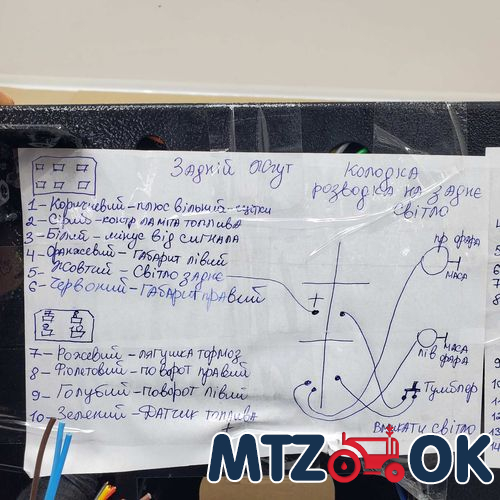 ЗАДНІЙ ДЖГУТ
1 - Коричневий - плюс вільний - щітки
2 - Сірий - контр лампа топлива
3 - Білий - мінус від сигнала
4 - Оранжевий - Габарит лівий
5 - Жовтий - Світло заднє
6 - Червоний - Габарит правий
7 - Рожевий - лягушка тормоз
8 - Фіолетовий - поворот правий
9 - Голубий - поворот лівий
10 - Зелений - Датчик топлива
КОЛОДКА
розводка на заднє
світло
пр фара
маса
+
лів фара
маса
Тумблер
Вмикати світло
MTZ OK